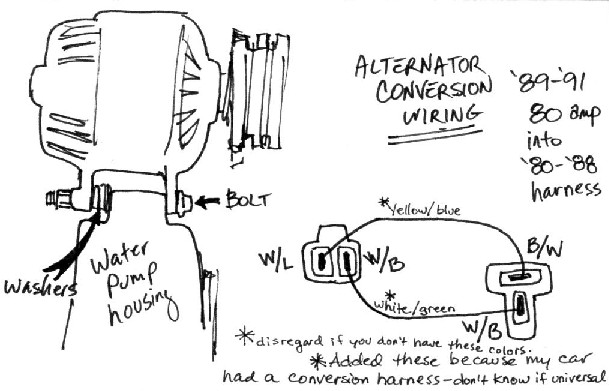 ALTERNATOR
CONVERSION
WIRING
'89-'91
80 amp
into
'80-'88
harness
BOLT
Washers
Water
Pump
housing
*yellow/blue
W/L
W/B
B/W
*
white/green
W/B
*disregard if you don't have these colors.
*Added these because my car
had a conversion harness-don't know if universal